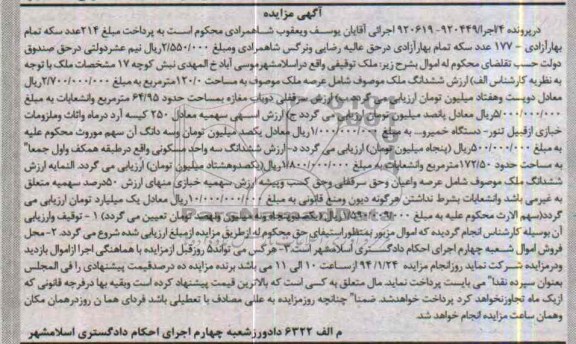 آگهی مزایده
درپرونده ۴/اجرا/۹۲۰۴۴۹ – ۹۲۰۶۱۹ اجرائی آقایان یوسف ویعقوب شاهمرادی محکوم است به پرداخت مبلغ ۲۱۴عدد سکه تمام
بهارآزادی – ۱۷۷ عدد سکه تمام بهارآزادی درحق عالیه رضایی ونرگس شاهمرادی ومبلغ ۲/۵۵۰/۰۰۰ریال نیم عشردولتی درحق صندوق
دولت حسب تقاضای محکوم له اموال بشرح زیر: ملک توقیفی واقع دراسلامشهرموسی آبادخ المهدی نبش کوچه ۱۷ مشخصات ملک با توجه
به نظریه کارشناس الف) ارزش ششدانگ ملک موصوف شامل عرصه ملک موصوف به مساحت ۱۲۰/۰مترمربع به مبلغ ۲/۷۰۰/۰۰۰/۰۰۰ریال
معادل دویست وهفتاد میلیون تومان ارزیابی می گردد ب- ارزش سرقفلی دوباب مغازه بمساحت حدود ۶۴/۹۵ مترمربع وانشعابات به مبلغ
۵/۰۰۰/۰۰۰/۰۰۰ریال معادل پانصد میلیون تومان ارزیابی می گردد ج) ارزش سهمی سهمیه معادل ۲۵۰ کیسه آرد درماه واثاث وملزومات
خبازی ازقبیل تنور- دستگاه خمیرو... به مبلغ ۱/۰۰۰/۰۰۰/۰۰۰ریال معادل یکصد میلیون تومان وسه دانگ آن سهم موروث محکوم علیه
به مبلغ ۵۰۰/۰۰۰/۰۰۰ریال (پنجاه میلیون تومان) ارزیابی می گردد د- ارزش ششدانگ سه واحد مسکونی واقع درطبقه همکف واول جمعا"
به مساحت حدود ۱۷۲/۵۰مترمربع وانشعابات به مبلغ ۱/۸۰۰/۰۰۰/۰۰۰ریال(یکصدوهشتاد میلیون تومان) ارزیابی می گردد. النمایه ارزش
ششدانگ ملک موصوف شامل عرصه واعیان وحق سرقفلی وحق کسب وپیشه ارزش سهمیه خبازی منهای ارزش ۵۰درصد سهمیه متعلق
به غیرمی باشد وانشعابات بشرط نداشتن هرگونه دیون ومنع قانونی به مبلغ ۱۰/۰۰۰/۰۰۰/۰۰۰ریال معادل یک میلیارد تومان ارزیابی می
گردد(سهم الارث محکوم علیه به مبلغ میلیون تومان تعیین می گردد) ۱ – توقیف وارزیابی
آن بوسیله کارشناس انجام گردیده که اموال مزبور بمنظوراستیفای حق محکوم له ازطریق مزایده ازمبلغ ارزیابی شده شروع می گردد. ۲– محل
فروش اموال شعبه چهارم اجرای احکام دادگستری اسلامشهر است ۳– هرکس می تواند۵ روزقبل ازمزایده با هماهنگی اجرا ازاموال بازدید
ودرمزایده شرکت نماید روزانجام مزایده ۹۴/۱/۲۴ ازساعت ۱۰ الی ۱۱ می باشد برنده مزایده ده درصدقیمت پیشنهادی را فی المجلس
بعنوان سپرده نقدا" می بایست پرداخت نماید. مال متعلق به کسی است که بالاترین قیمت پیشنهاد کرده است وبقیه بها درفرجه قانونی که
ازیک ماه تجاوزنخواهد کرد پرداخت خواهندشد. ضمنا" چنانچه روزمزایده به عللی مصادف با تعطیلی باشد فردای هما ن روزدرهمان مکان
وهمان ساعت مزایده انجام خواهد شد.
م الف ۶۳۲۲ دادورزشعبه چهارم اجرای احکام دادگستری اسلامشهر